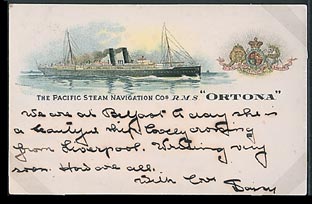 THE PACIFIC STEAM NAVIGATION COS R.M.S "ORTONA"
We are at Belfast today she is
a beautiful ship lovely crossing
from Liverpool. Writing very
soon. Hope are all.
With Love